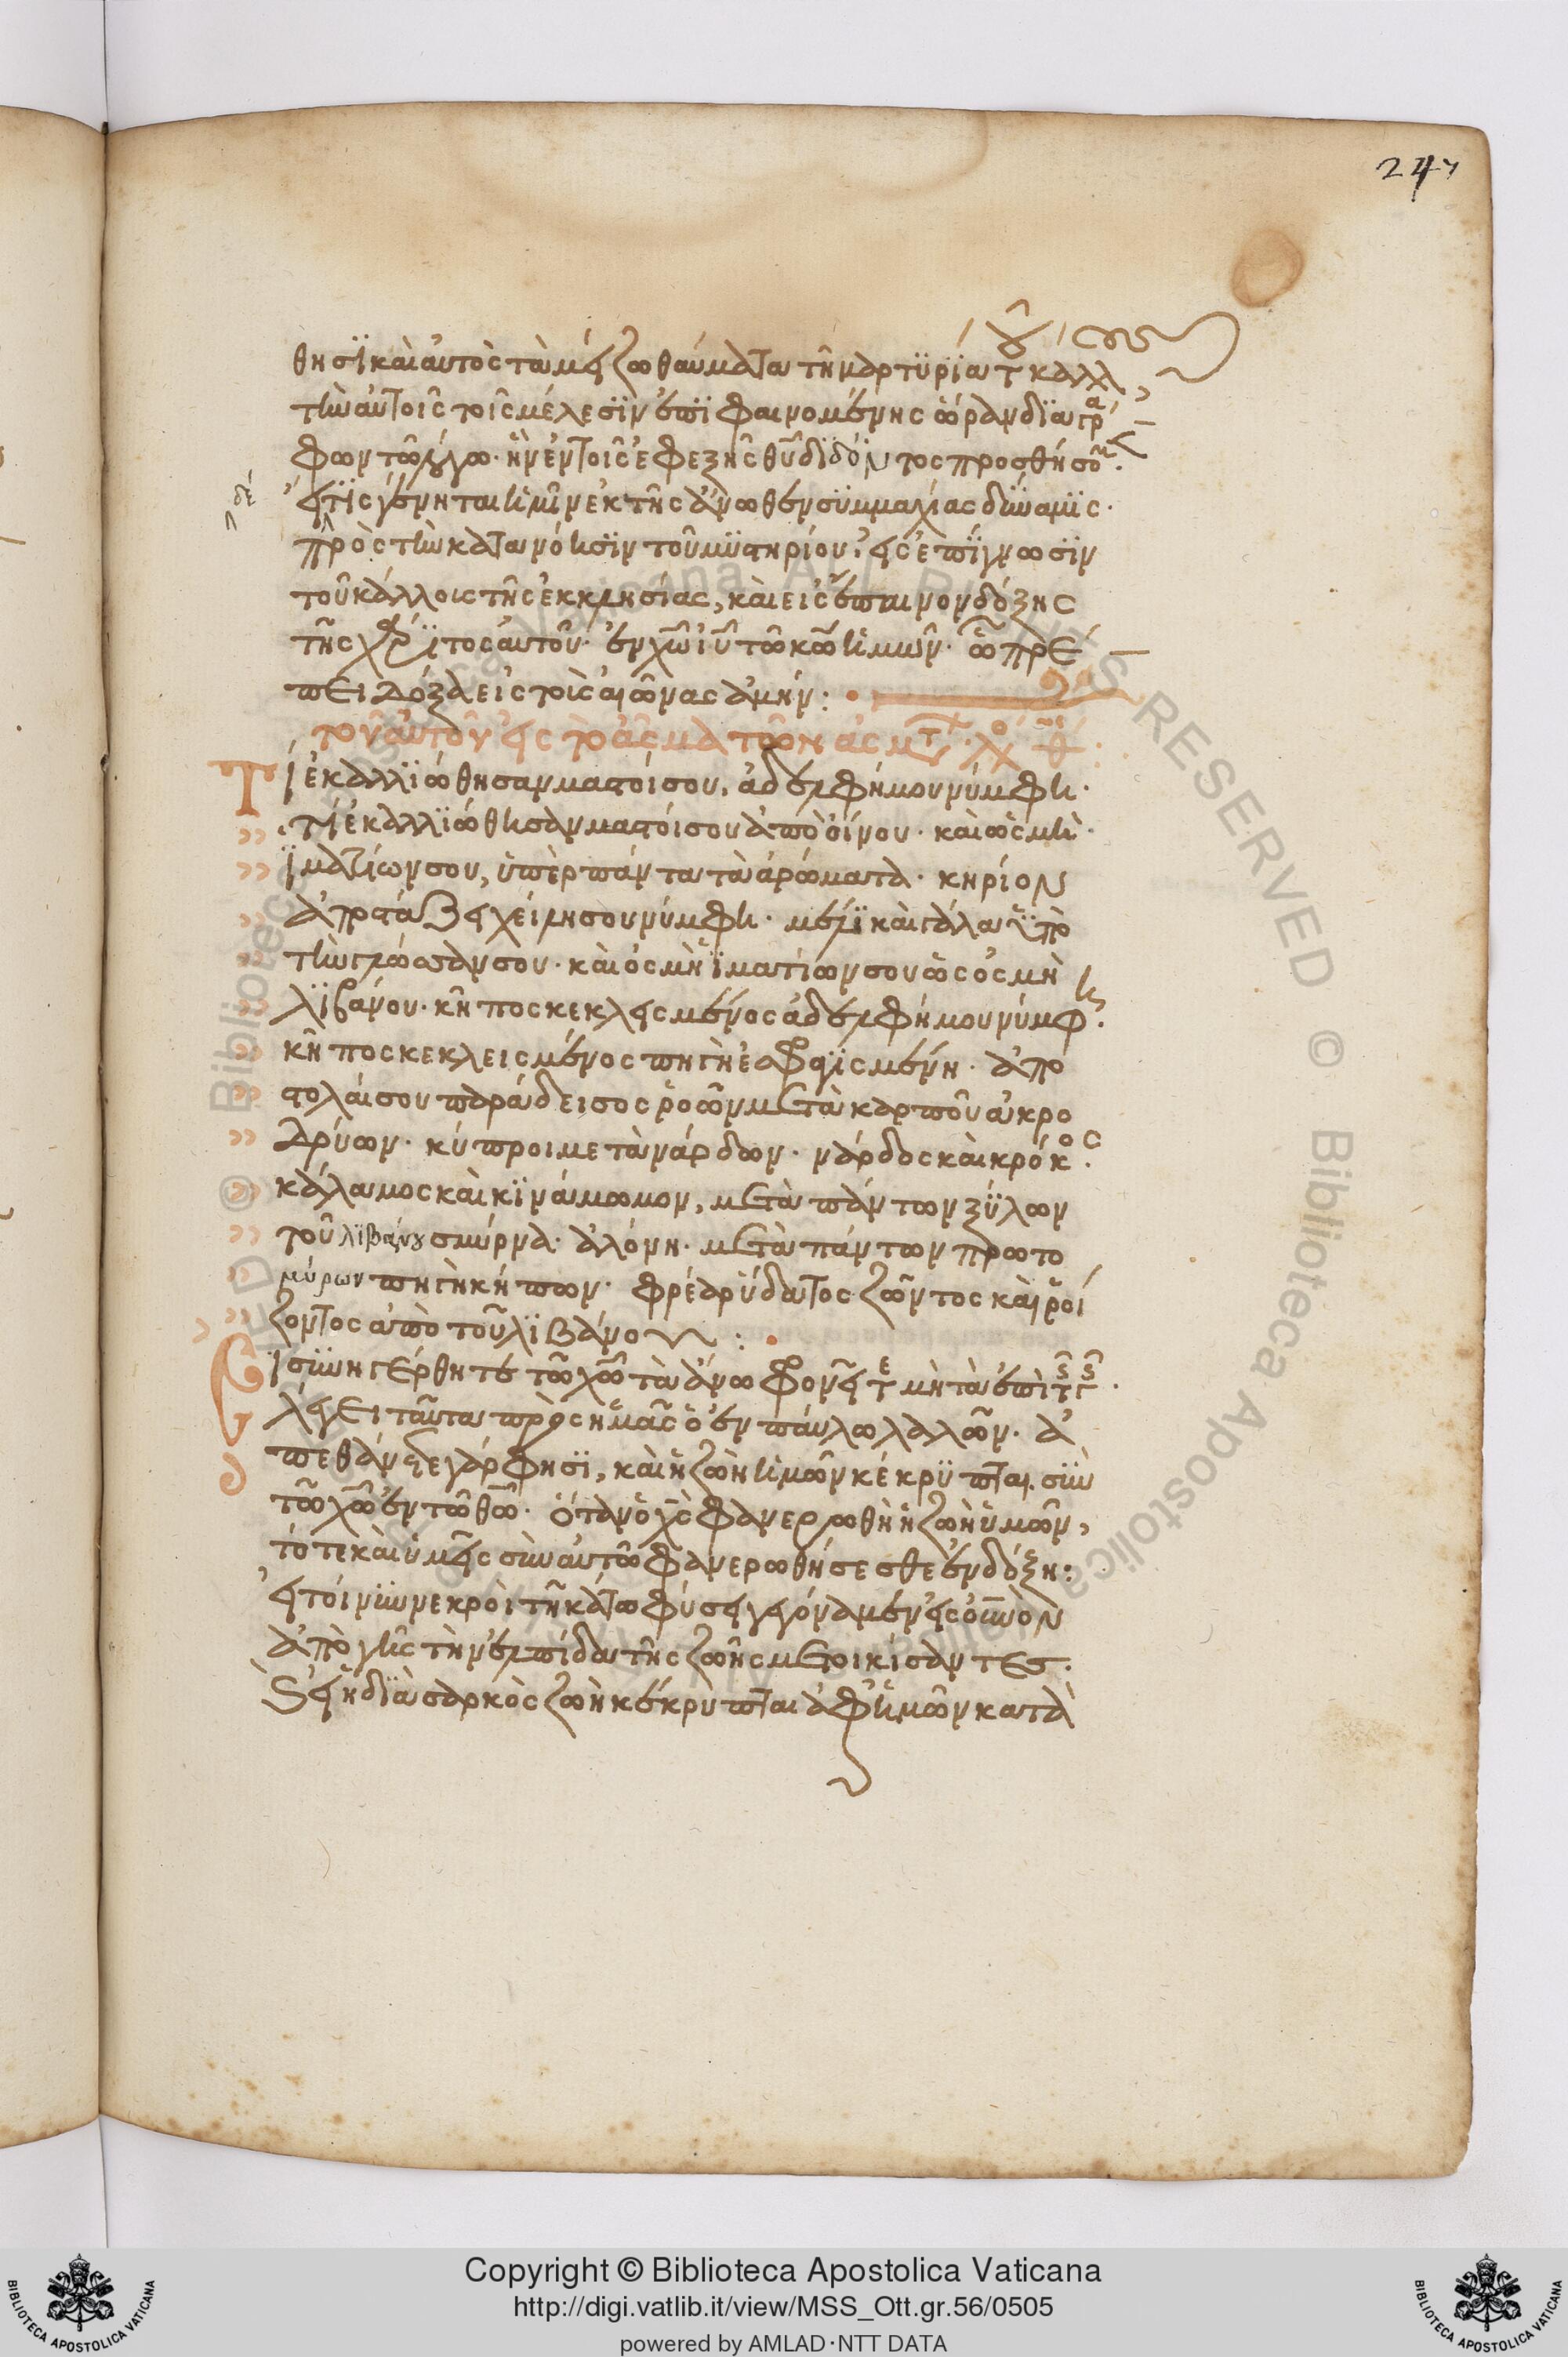 247
θησϊ καὶ αὐτὸς τὰ μείζω θαύματα τῆ μαρτϋρία τοῦ κάλλους
τὴν αὐτοῖς τοῖς μέλεσϊν ἐπϊφαινομένης ὥραν διαγρά
φων τῶ λόγω. ἣν ἐν τοῖς ἐφεξῆς θυ διδόντος προσθήσομεν.
εἴ τϊς γένηται ἡμῖν ἐκ τῆς ἄνωθεν συμμαχίας δύναμϊς.
πρὸς τὴν κατανόησϊν τοῦ μϋστηρίου. εἰς ἐπϊγνωσϊν
τοῦ κάλλους τῆς ἐκκλησίας, καὶ εἰς ἔπαινον δόξης
τῆς χάριτος αὐτοῦ. ἐν χω ιυ τῶ κω ἡμῶν. ὧ πρέ
πει δόξα εἰς τοὺς αἰῶνας ἀμήν:
τοῦ αὐτοῦ εἰς τὸ ἆσμα τῶν ἀσμτ. λο θ
Τί ἐκαλλιώθησαν μαστοί σου, ἀδελφή μου νύμφη.
τί ἐκαλλϊώθησαν μαστοί σου ἀπὸ οἴνου. καὶ ὀσμὴ
ϊματίων σου, ὑπὲρ πάντα τὰ ἀρώματα. κηρίον
ἀποστάζει χείλη σου νύμφη. μέλϊ καὶ γάλα ὑπὸ
τὴν γλῶσσάν σου. καὶ ὀσμὴ ϊματίων σου ὡς ὀσμὴ
λϊβάνου. κῆπος κεκλεισμένος ἀδελφή μου νύμφη.
κῆπος κεκλεισμένος πηγὴ ἐσφραγϊσμένη. ἀπο
στολαί σου παράδεισος ῥοῶν μετὰ καρποῦ ἀκρο
δρύων. κύπροι μετὰ νάρδων. νάρδος καὶ κρόκος.
κάλαμος καὶ κϊνάμωμον, μετὰ πάντων ξύλων
τοῦ λϊβάνου σμύρνα. ἀλόη. μετὰ πάντων πρωτο
μύρων πηγὴ κήπων. φρέαρ ὕδατος ζῶντος καὶ ῥοί
ζοντος ἀπὸ τοῦ λϊβάνου:
Εϊ συνηγέρθητε τῶ χω τὰ ἄνω φρονεῖτε μὴ τὰ ἐπὶ τῆς γῆς.
λέγει ταῦτα πρὸς ἡμᾶς ὁ ἐν παύλω λαλῶν. ἀ
πεθάνετε γάρ φησϊ, καὶ ἡ ζωὴ ἡμῶν κέκρυπται σὺν
τῶ χω ἐν τῶ θω. ὅταν ὁ χς φανερωθῆ ἡ ζωὴ ὑμῶν,
τότε καὶ ὑμεῖς σὺν αὐτῶ φανερωθήσεσθε ἐν δόξη:
εἰ τοίνυν νεκροὶ τῆ κάτω φύσει γεγόναμεν εἰς ουνον
ἀπὸ γῆς τὴν ἐλπίδα τῆς ζωῆς μετοικίσαντες.
ὡς ἡ διὰ σαρκὸς ζωὴ κέκρυπται ἀφ' ἡμῶν κατὰ
Copyright © Biblioteca Apostolica Vaticana
http://digi.vatlib.it/view/MSS_Ott.gr.56/0505
powered by AMLAD·NTT DATA